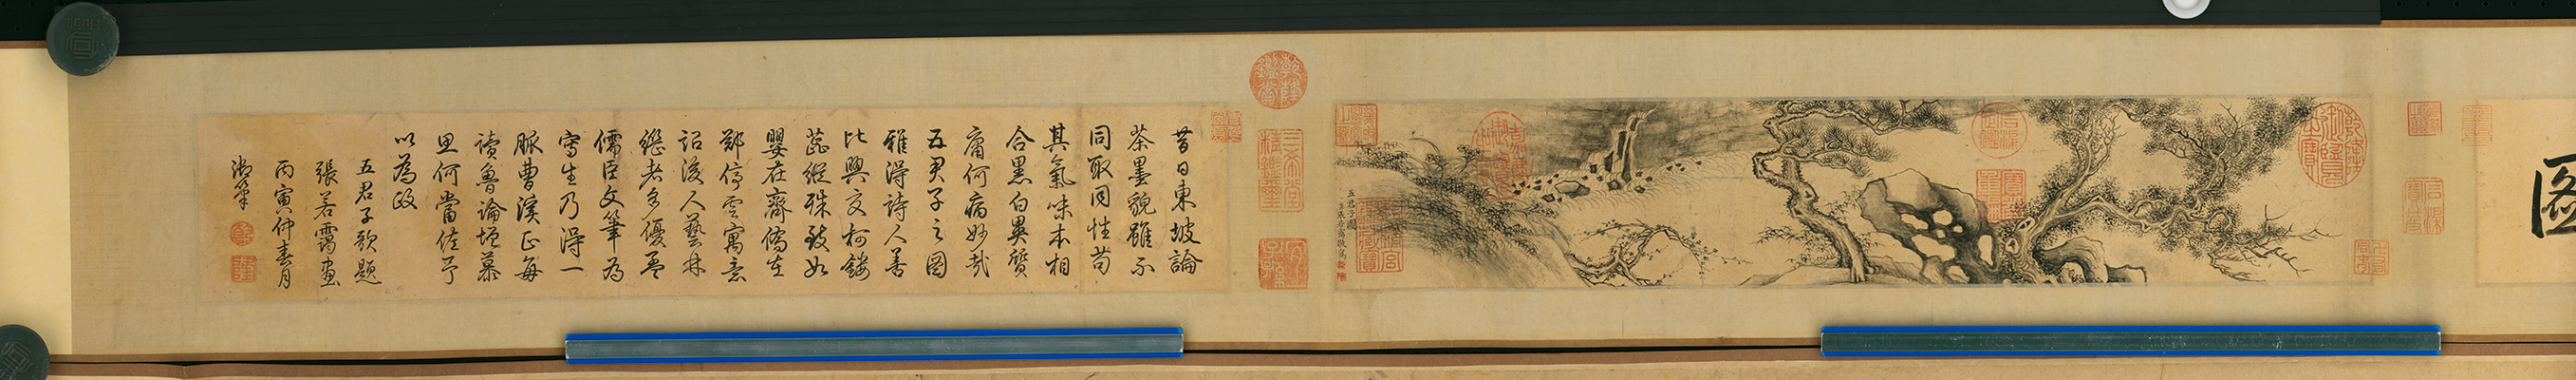 圖
五君子圖
昔日東坡論
茶墨貌雖不
同取同性苟
其氣味本相
合黑白異質
庸何病妙哉
五君子之圖
雅得詩人善
比興交柯鏤
蕊縱殊致如
嬰在齊僑在
鄭停雲寓意
詔後人藝林
繼者多優孟
儒臣文筆為
寫生乃得一
脈曹溪正每
讀魯論增慕
思何當佐予
以為政
五君子歌題
張若靄畫
丙寅仲春月
御筆